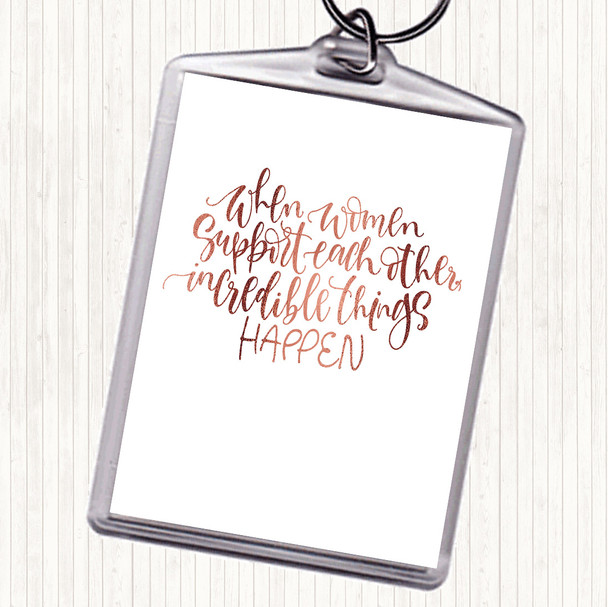 When women
Support each other,
incredible things
HAPPEN